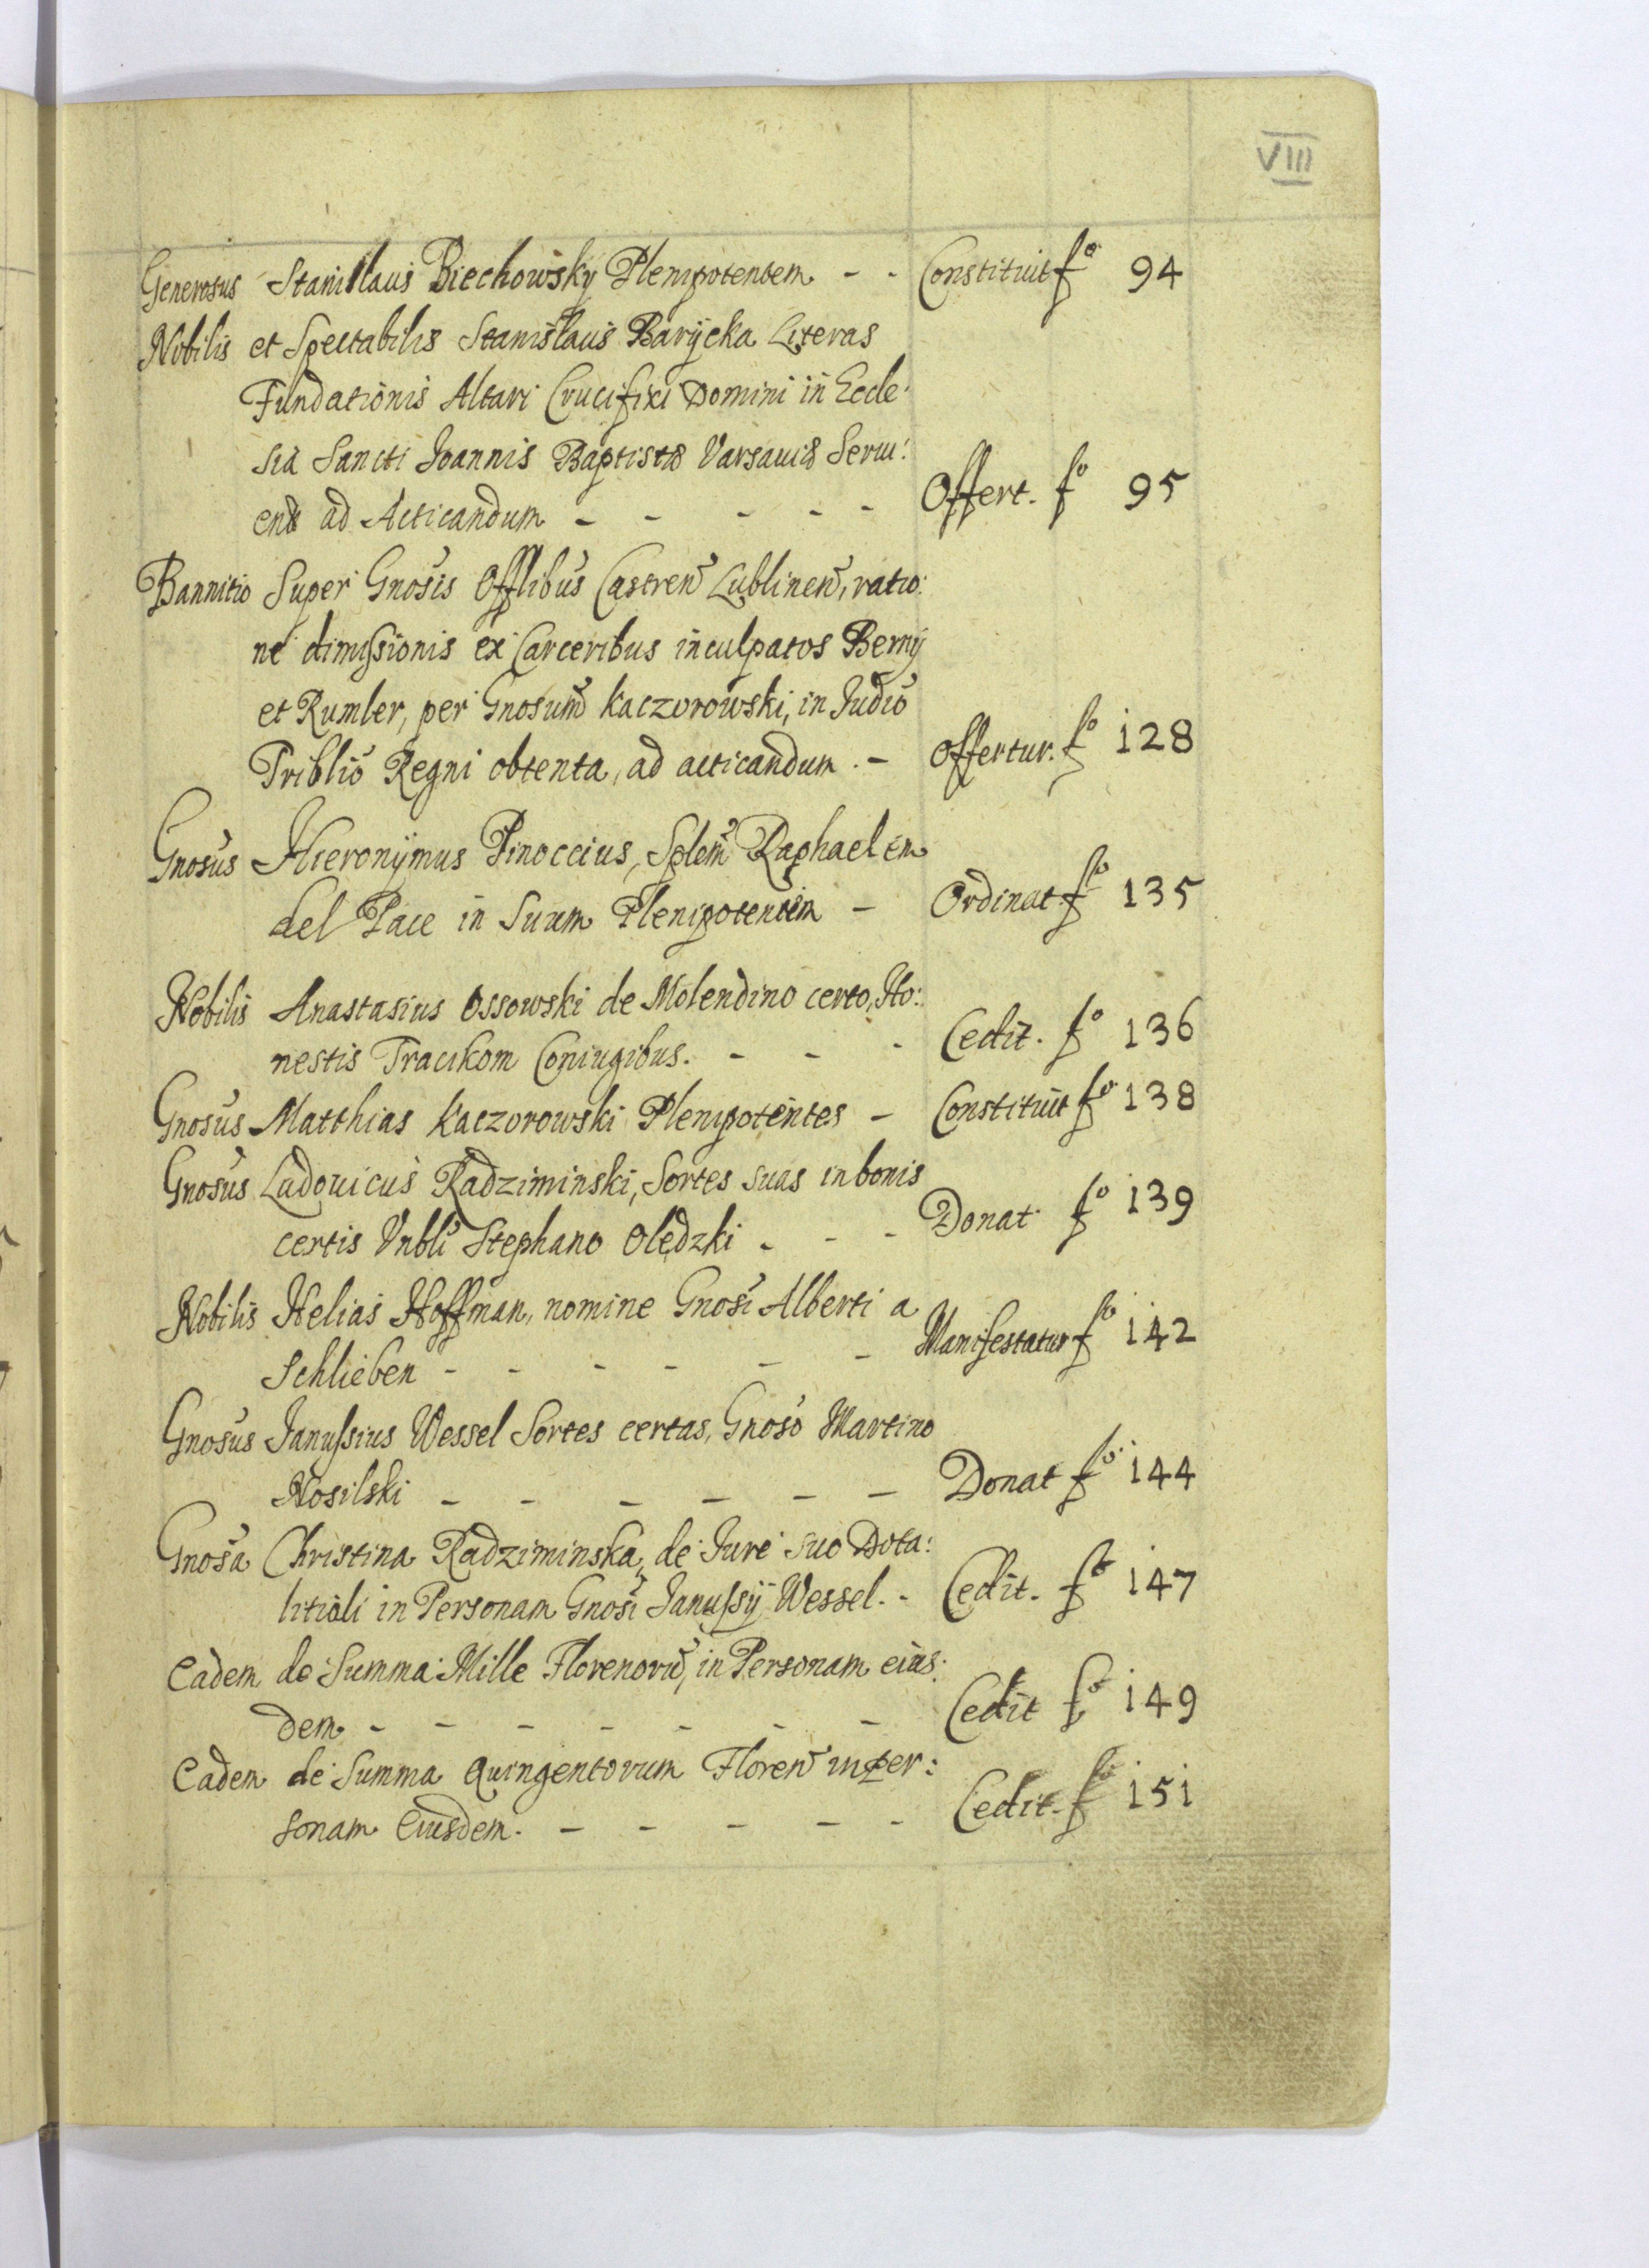 VIII
Generosus Stanislaus Biechowsky Plenipotentem - - Constituit fº 94
Nobilis et Spectabilis Stanislaus Barÿcka Literas
Fundationis Altari Crucifixi Domini in Eccle:
sia Sancti Joannis Baptistæ Varsauiæ Serui:
endæ ad Acticandum - - - - - Offert. fº 95
Bannitio Super Gnosis Offlibus Castren Lublinen, ratio:
ne dimissionis ex Carceribus inculpatos Berny
et Rumler, per Gnosum Kaczorowski, in Judio
Triblio Regni obtenta, ad acticandum. - Offertur. fº 128
Gnosus Hieronÿmus Pinoccius, Splem Raphaelem
del Pace in Suum Plenipotentem - Ordinat fº 135
Nobilis Anastasius Ossowski de Molendino certo, Ho:
nestis Tracikom Coniugibus. - - - Cedit. fº 136
Gnosus Matthias Kaczorowski Plenipotentes - Constituit fº 138
Gnosus Ludouicus Radziminski, Sortes suas in bonis
certis Vnbli Stephano Olędzki - - - Donat fº 139
Nobilis Helias Hoffman, nomine Gnosi Alberti a
Schlieben - - - - - - Manifestatur fº 142
Gnosus Janussius Wessel Sortes certas, Gnoso Martino
Nosilski - - - - - - Donat fº 144
Gnosa Christina Radziminska, de Jure suo Dota:
litiali in Personam Gnosi Janussÿ Wessel. - Cedit. fº 147
Eadem de Summa Mille Florenoru, in Personam eius:
dem - - - - - - - Cedit fº 149
Eadem de Summa Quingentorum Floren in per:
sonam Eiusdem. - - - - - Cedit. fº 151